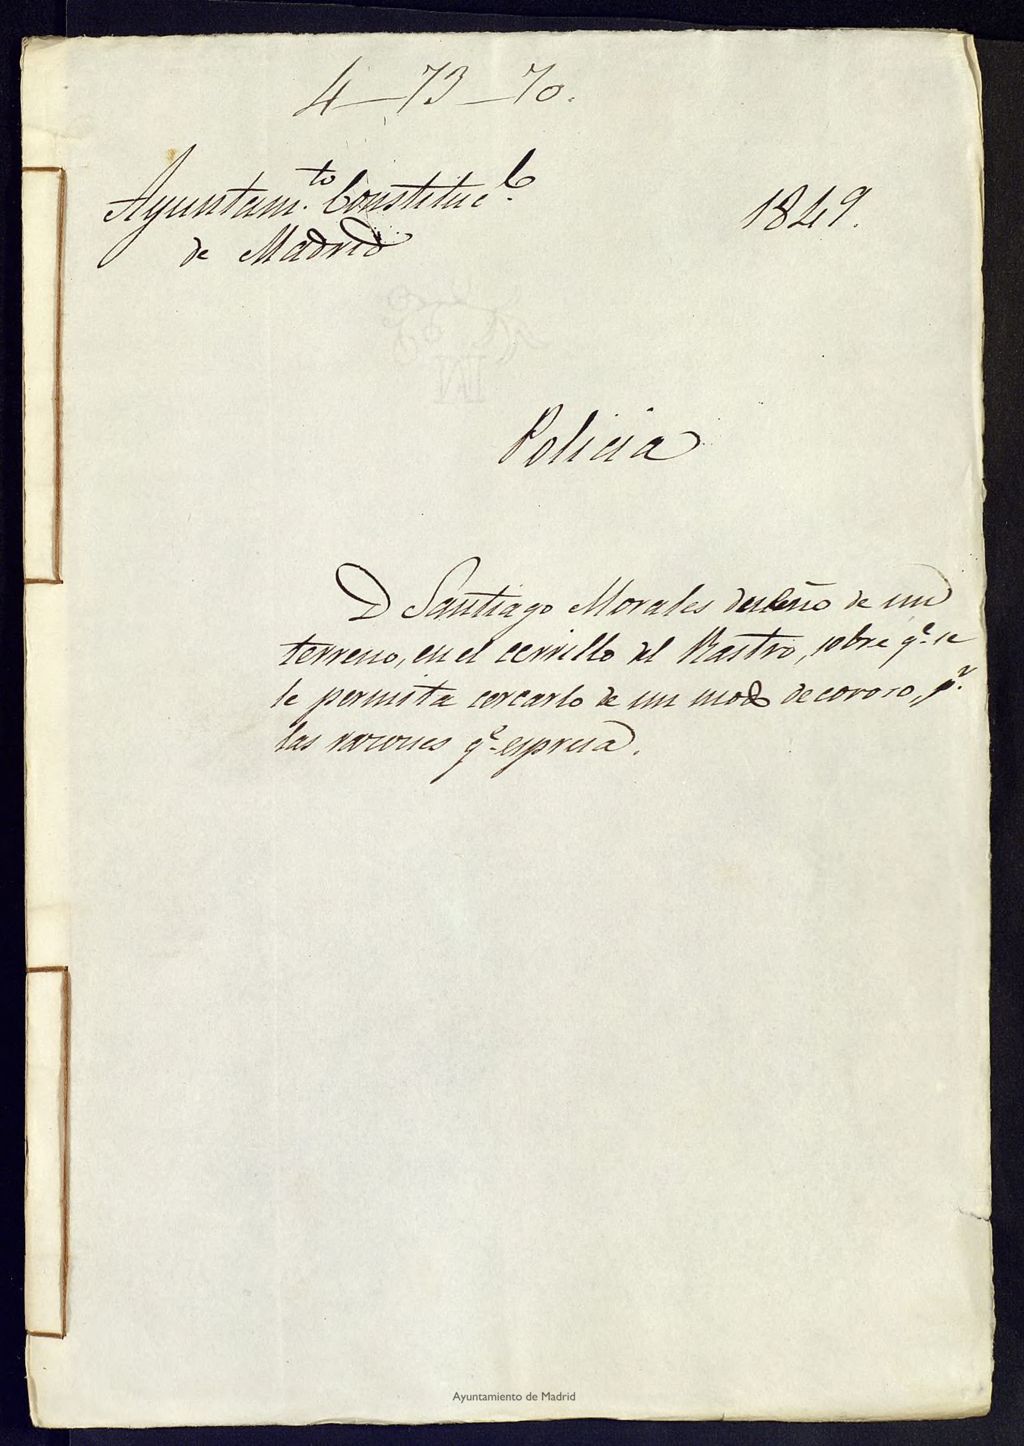 4-73-70.
Ayuntam.to Constituc.l
de Madrid
1849.
Policia
D Santiago Morales dueño de un
terreno, en el cerrillo del Rastro, sobre q.e se
le permita cercarlo de un modo decoroso, p.r
las razones q.e espresa.
Ayuntamiento de Madrid